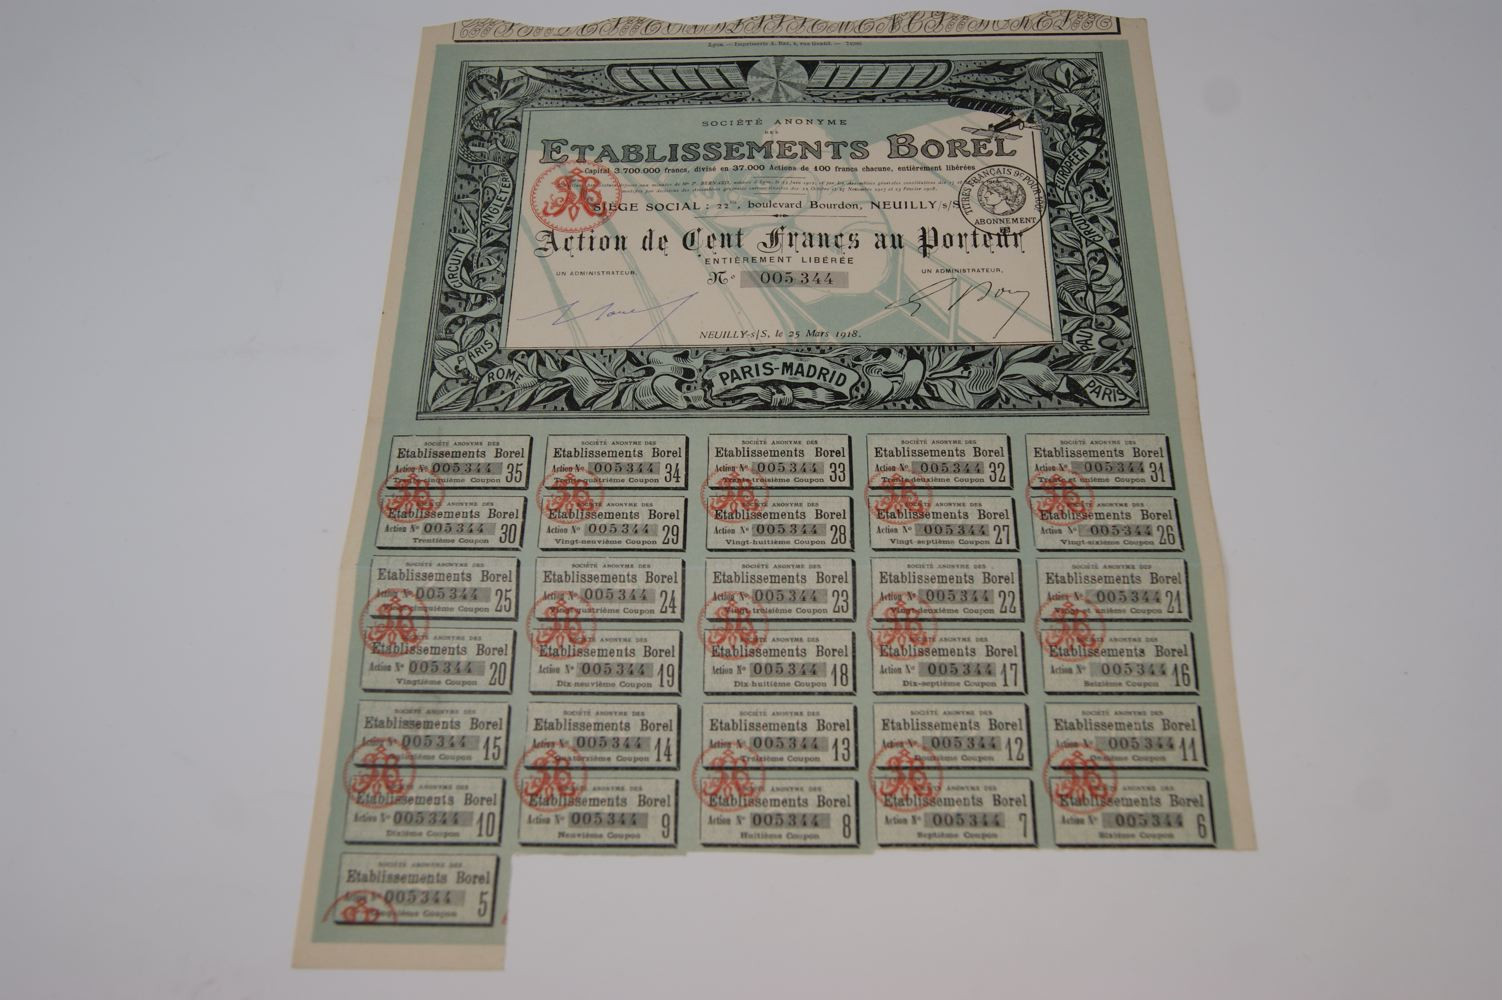 Lyon — Imprimerie A. Rey, 4, rue Gentil. —
SOCIÉTÉ ANONYME
DES
ETABLISSEMENTS BOREL
Capital 3.700.000 francs, divisé en 37.000 Actions de 100 francs chacune, entièrement libérées
SIÈGE SOCIAL : boulevard Bourdon, NEUILLY s/S
TITRES FRANÇAIS
ABONNEMENT
Action de Cent Francs au Porteur
ENTIÈREMENT LIBÉRÉE
UN ADMINISTRATEUR,
N° 005344
UN ADMINISTRATEUR,
NEUILLY-s/S, le 25 Mars 1918.
CIRCUIT
ANGLETERRE
CIRCUIT
EUROPÉEN
PARIS
ROME
PARIS-MADRID
PAU
PARIS
SOCIÉTÉ ANONYME DES
Etablissements Borel
Action N° 005344 35
Trente-cinquième Coupon
SOCIÉTÉ ANONYME DES
Etablissements Borel
Action N° 005344 34
Trente-quatrième Coupon
SOCIÉTÉ ANONYME DES
Etablissements Borel
Action N° 005344 33
Trente-troisième Coupon
SOCIÉTÉ ANONYME DES
Etablissements Borel
Action N° 005344 32
Trente-deuxième Coupon
SOCIÉTÉ ANONYME DES
Etablissements Borel
Action N° 005344 31
Trente et unième Coupon
ANONYME DES
Etablissements Borel
Action N° 005344 30
Trentième Coupon
ANONYME DES
Etablissements Borel
Action N° 005344 29
Vingt-neuvième Coupon
ANONYME DES
Etablissements Borel
Action N° 005344 28
Vingt-huitième Coupon
ANONYME DES
Etablissements Borel
Action N° 005344 27
Vingt-septième Coupon
ANONYME DES
Etablissements Borel
Action N° 005344 26
Vingt-sixième Coupon
SOCIÉTÉ ANONYME DES
Etablissements Borel
Action N° 005344 25
Vingt-cinquième Coupon
SOCIÉTÉ ANONYME DES
Etablissements Borel
Action N° 005344 24
Vingt-quatrième Coupon
SOCIÉTÉ ANONYME DES
Etablissements Borel
Action N° 005344 23
Vingt-troisième Coupon
SOCIÉTÉ ANONYME DES
Etablissements Borel
Action N° 005344 22
Vingt-deuxième Coupon
SOCIÉTÉ ANONYME DES
Etablissements Borel
Action N° 005344 21
Vingt et unième Coupon
ANONYME DES
Etablissements Borel
Action N° 005344 20
Vingtième Coupon
ANONYME DES
Etablissements Borel
Action N° 005344 19
Dix-neuvième Coupon
ANONYME DES
Etablissements Borel
Action N° 005344 18
Dix-huitième Coupon
ANONYME DES
Etablissements Borel
Action N° 005344 17
Dix-septième Coupon
ANONYME DES
Etablissements Borel
Action N° 005344 16
Seizième Coupon
SOCIÉTÉ ANONYME DES
Etablissements Borel
Action N° 005344 15
Quinzième Coupon
SOCIÉTÉ ANONYME DES
Etablissements Borel
Action N° 005344 14
Quatorzième Coupon
SOCIÉTÉ ANONYME DES
Etablissements Borel
Action N° 005344 13
Treizième Coupon
SOCIÉTÉ ANONYME DES
Etablissements Borel
Action N° 005344 12
Douzième Coupon
SOCIÉTÉ ANONYME DES
Etablissements Borel
Action N° 005344 11
Onzième Coupon
ANONYME DES
Etablissements Borel
Action N° 005344 10
Dixième Coupon
ANONYME DES
Etablissements Borel
Action N° 005344 9
Neuvième Coupon
ANONYME DES
Etablissements Borel
Action N° 005344 8
Huitième Coupon
ANONYME DES
Etablissements Borel
Action N° 005344 7
Septième Coupon
ANONYME DES
Etablissements Borel
Action N° 005344 6
Sixième Coupon
SOCIÉTÉ ANONYME DES
Etablissements Borel
Action N° 005344 5
Cinquième Coupon